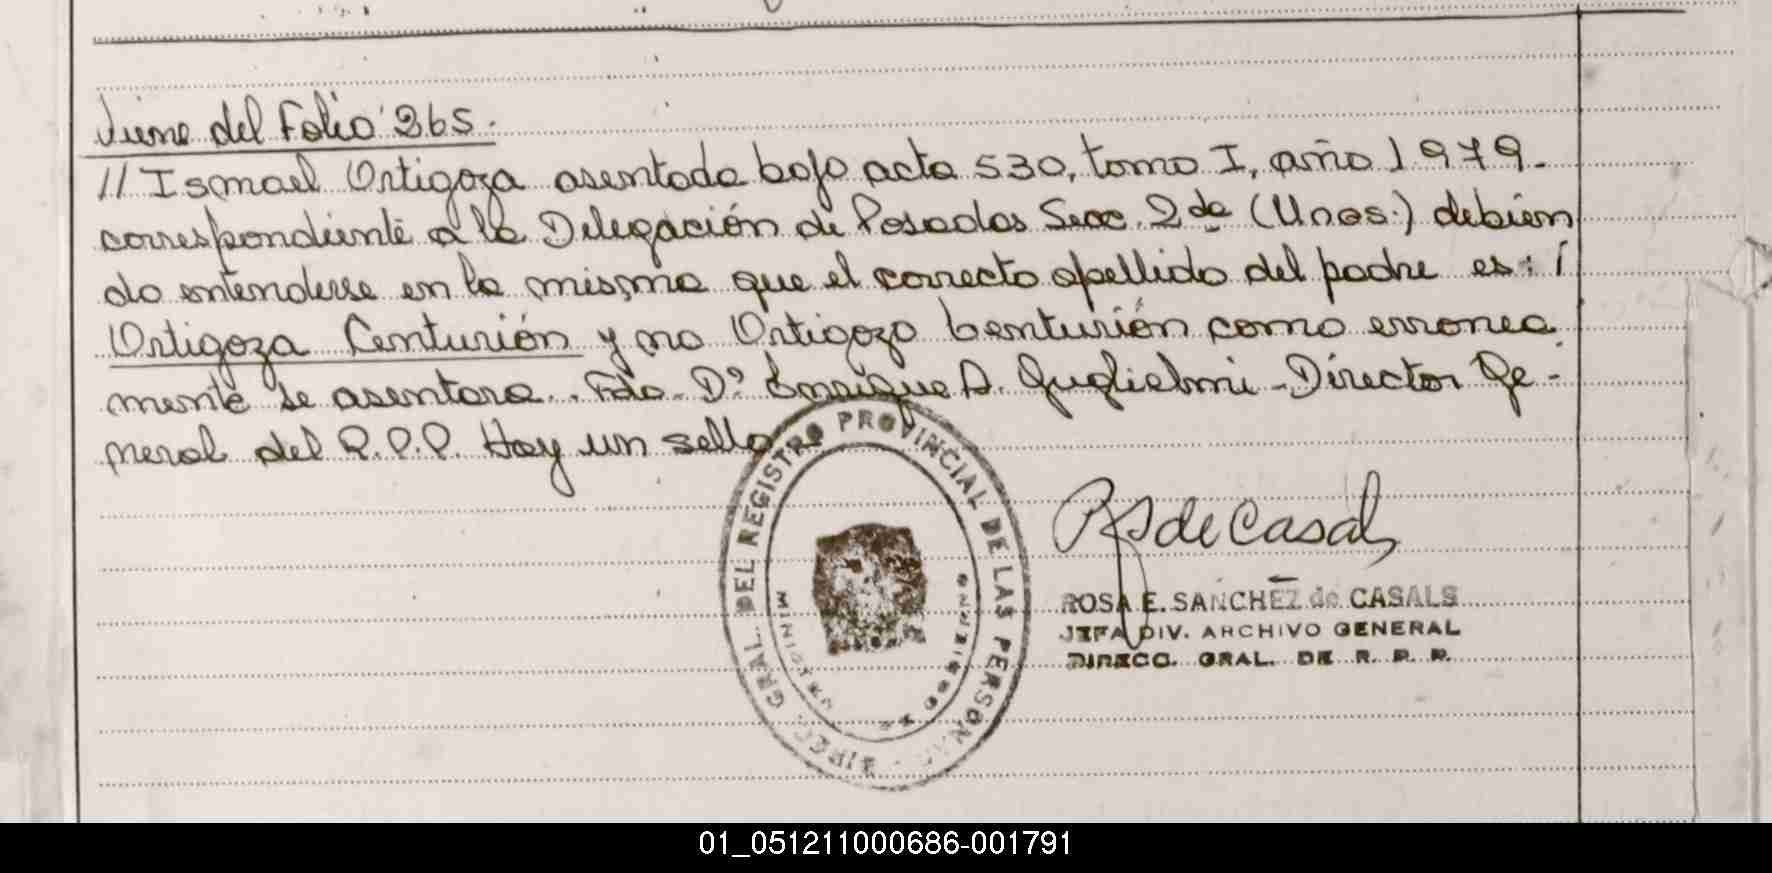 Viene del Folio 365.
// Ismael Ortigoza asentada bajo acta 530, tomo I, año 1979.
correspondiente a la Delegación de Posadas Secc. 2da (Unos.) debien
do entenderse en la misma que el correcto apellido del padre es:
Ortigoza Centurión y no Ortigozo Centurión como erronea
mente se asentara. Fdo. D° Enrique A. Guglielmi - Director Ge-
neral del R.P.P. Hay un sello
DIREC. GRAL. DEL REGISTRO PROVINCIAL DE LAS PERSONAS
R S de Casals
ROSA E. SANCHEZ de CASALS
JEFA DIV. ARCHIVO GENERAL
DIRECC. GRAL. DE R. P. P.
01_051211000686-001791